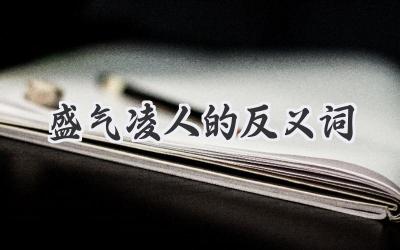 盛气凌人的反义词